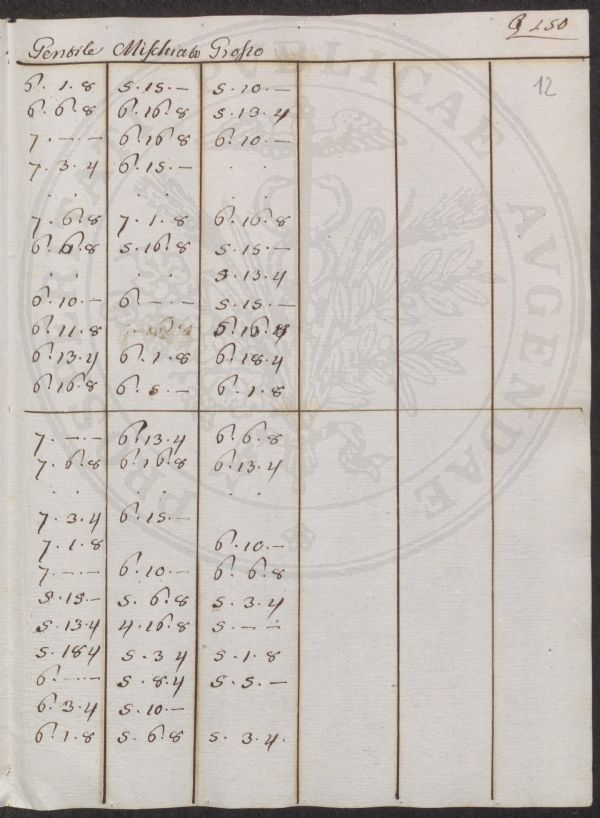 150
12
Gentile Mischiato Grosso
6. 1. 8 5. 15. — 5. 10. —
6. 6. 8 6. 16. 8 5. 13. 4
7. — . — 6. 16. 8 6. 10. —
7. 3. 4 6. 15. — . .
. . . .
7. 6. 8 7. 1. 8 6. 16. 8
6. 6. 8 5. 16. 8 5. 15. —
. . . . 5. 13. 4
6. 10. — 6. — . — 5. 15. —
6. 11. 8 6. 16.
6. 13. 4 6. 1. 8 6. 18. 4
6. 16. 8 6. 5. — 6. 1. 8
7. — . — 6. 13. 4 6. 6. 8
7. 6. 8 6. 16. 8 6. 13. 4
. . . . . .
7. 3. 4 6. 15. —
7. 1. 8 6. 10. —
7. — . — 6. 10. — 6. 6. 8
5. 15. — 5. 6. 8 5. 3. 4
5. 13. 4 4. 16. 8 5. — —
5. 18 4 5. 3 4 5. 1. 8
6. — . — 5. 8. 4 5. 5. —
6. 3. 4 5. 10. —
6. 1. 8 5. 6. 8 5. 3. 4.
PUBLICAE AVGENDAE